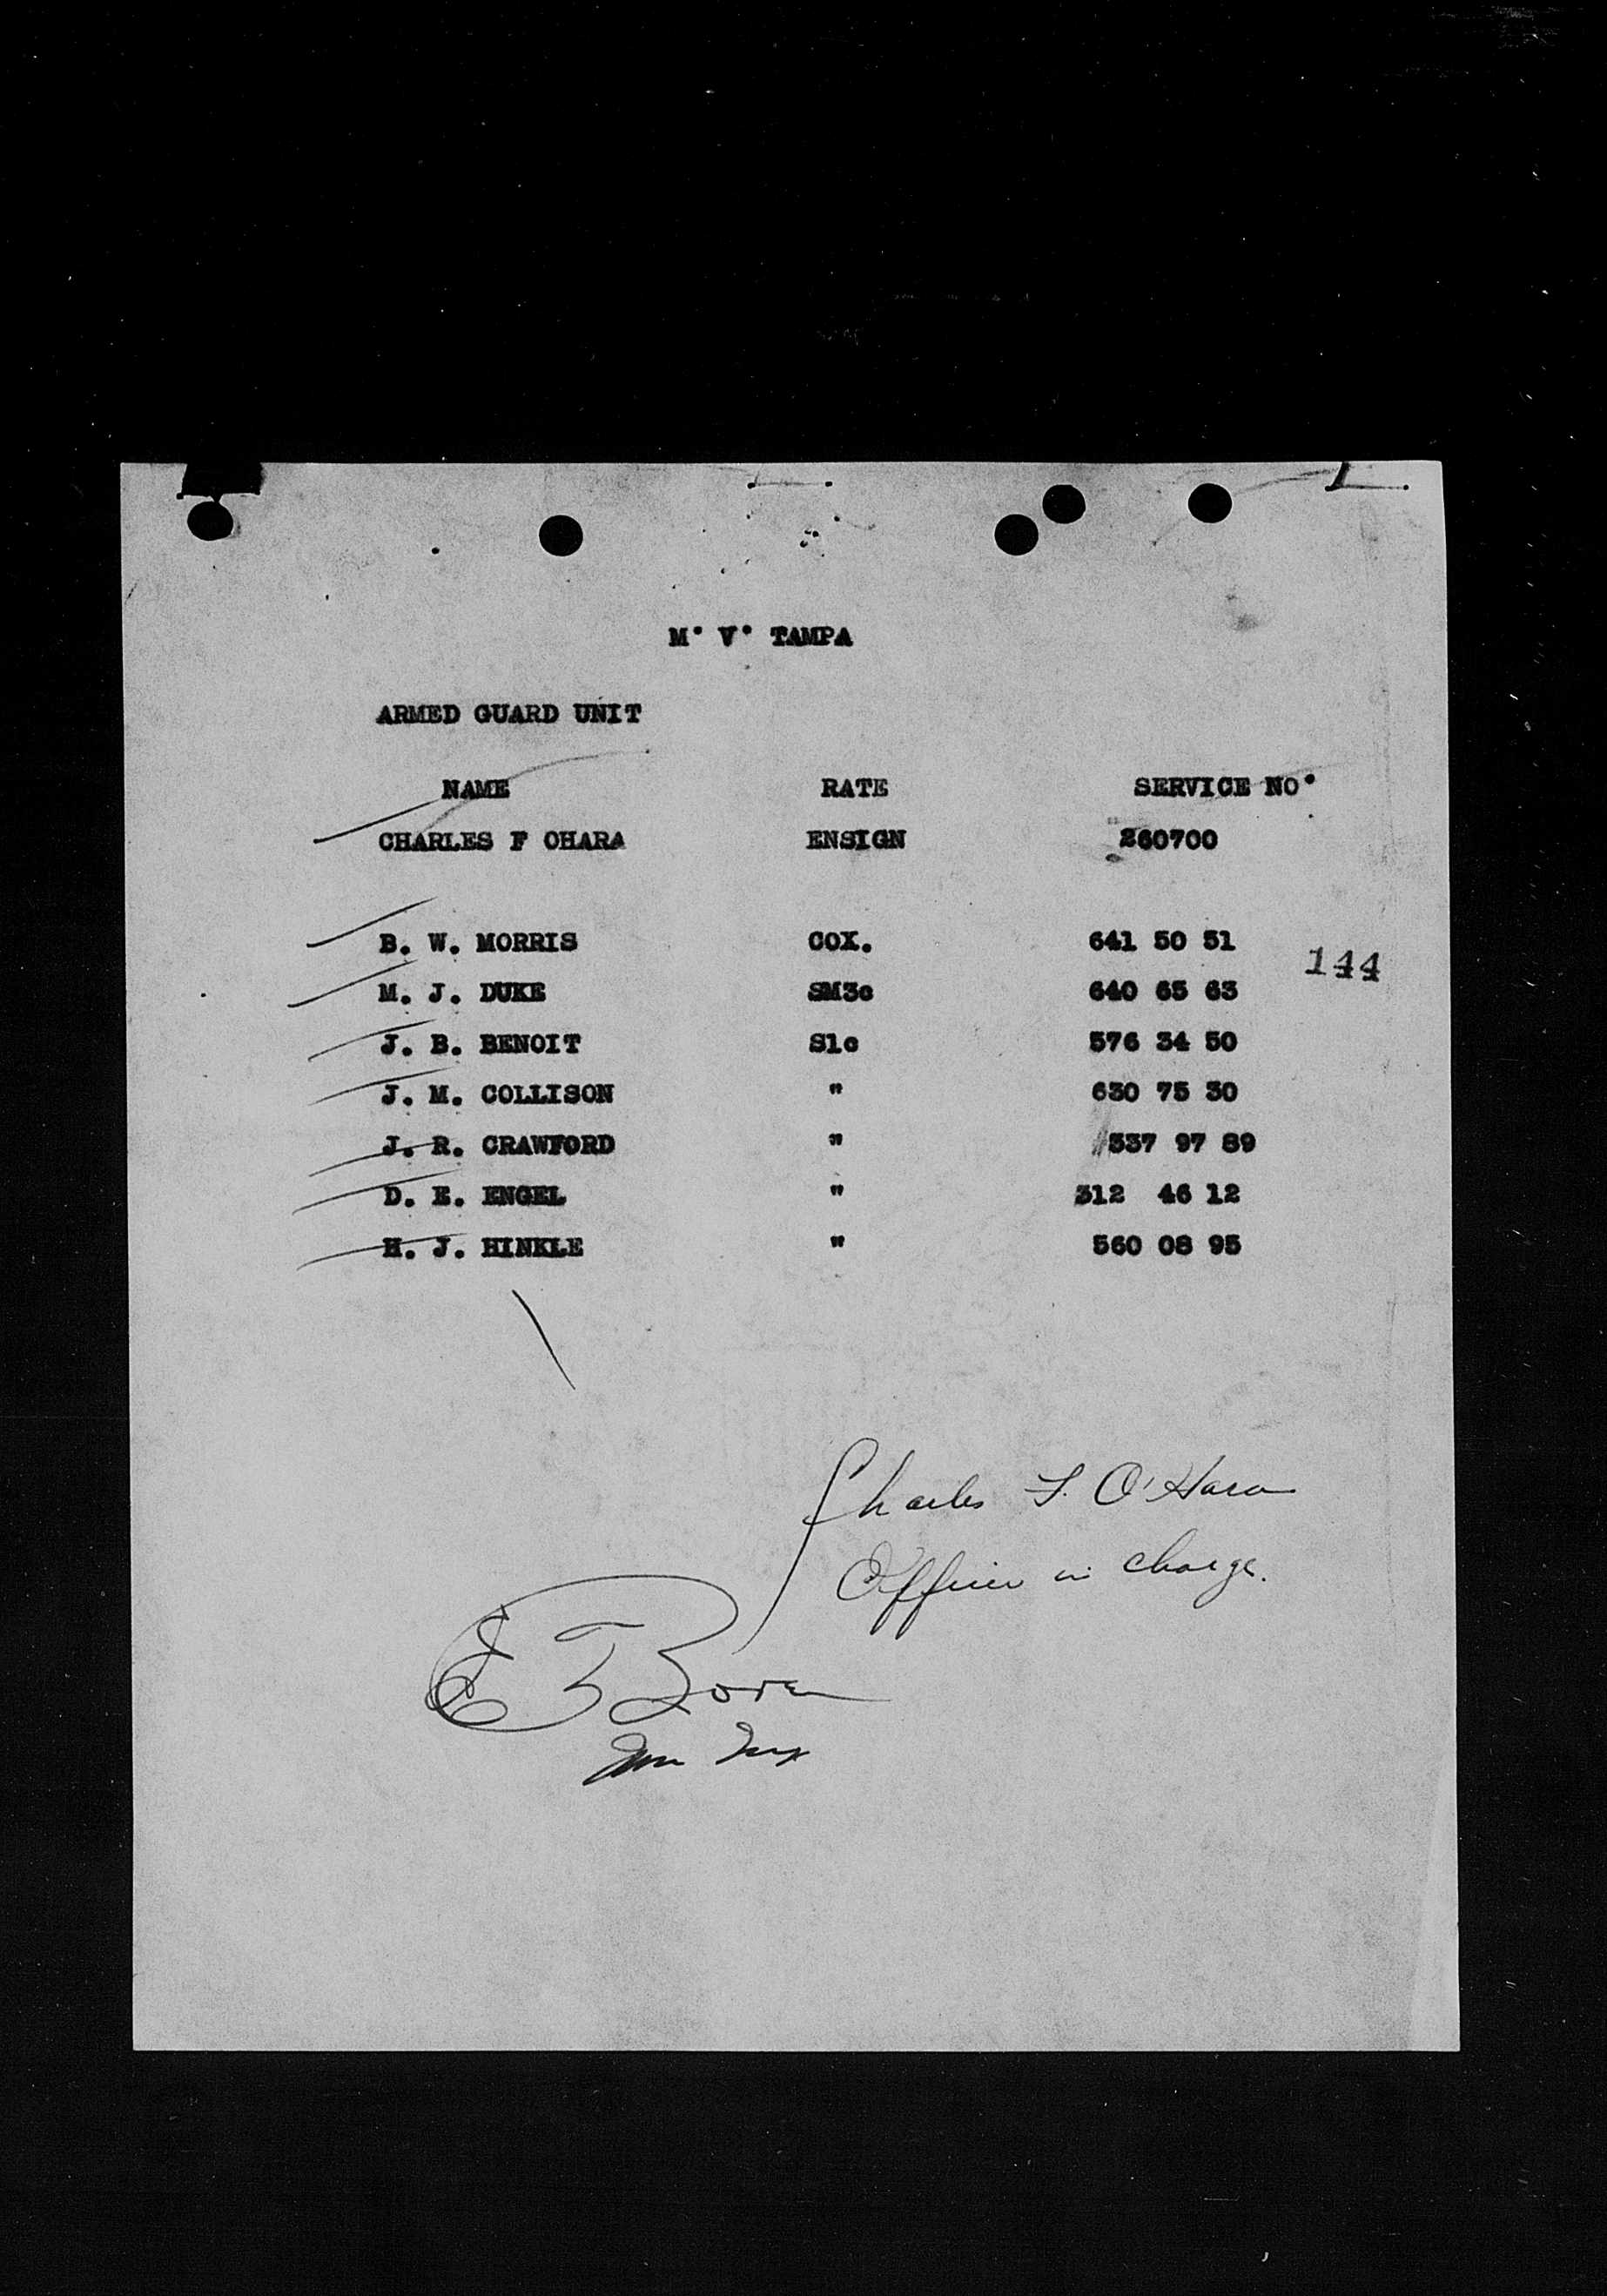 M. V. TAMPA
ARMED GUARD UNIT
NAME RATE SERVICE NO.
CHARLES F OHARA ENSIGN 260700
B. W. MORRIS COX. 641 50 51
144
M. J. DUKE SM3c 640 65 63
J. B. BENOIT S1c 576 34 50
J. M. COLLISON " 630 75 30
J. R. CRAWFORD " 337 97 89
D. E. ENGEL " 312 46 12
H. J. HINKLE " 560 08 95
Charles F. O'Hara
Officer in charge.
E